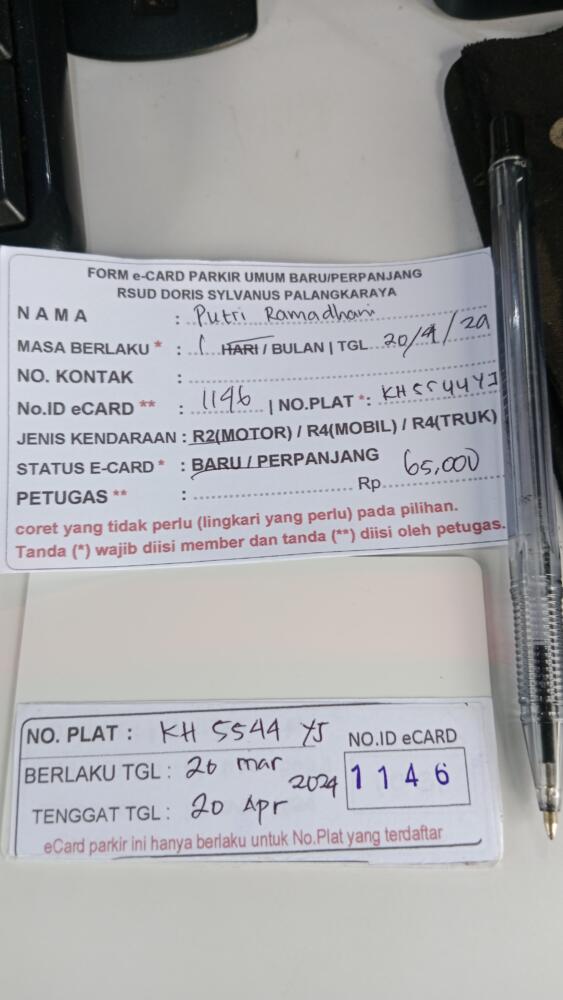 FORM e-CARD PARKIR UMUM BARU/PERPANJANG
RSUD DORIS SYLVANUS PALANGKARAYA
NAMA : Putri Ramadhani
MASA BERLAKU * : 1 HARI / BULAN | TGL 20/4/24
NO. KONTAK :
No.ID eCARD ** : 1146 | NO.PLAT *: KH 5544 YJ
JENIS KENDARAAN : R2(MOTOR) / R4(MOBIL) / R4(TRUK)
STATUS E-CARD * : BARU / PERPANJANG
PETUGAS ** : Rp 65,000
coret yang tidak perlu (lingkari yang perlu) pada pilihan.
Tanda (*) wajib diisi member dan tanda (**) diisi oleh petugas.
NO. PLAT : KH 5544 YJ
NO.ID eCARD
BERLAKU TGL : 20 mar
2024
1146
TENGGAT TGL : 20 Apr
eCard parkir ini hanya berlaku untuk No.Plat yang terdaftar